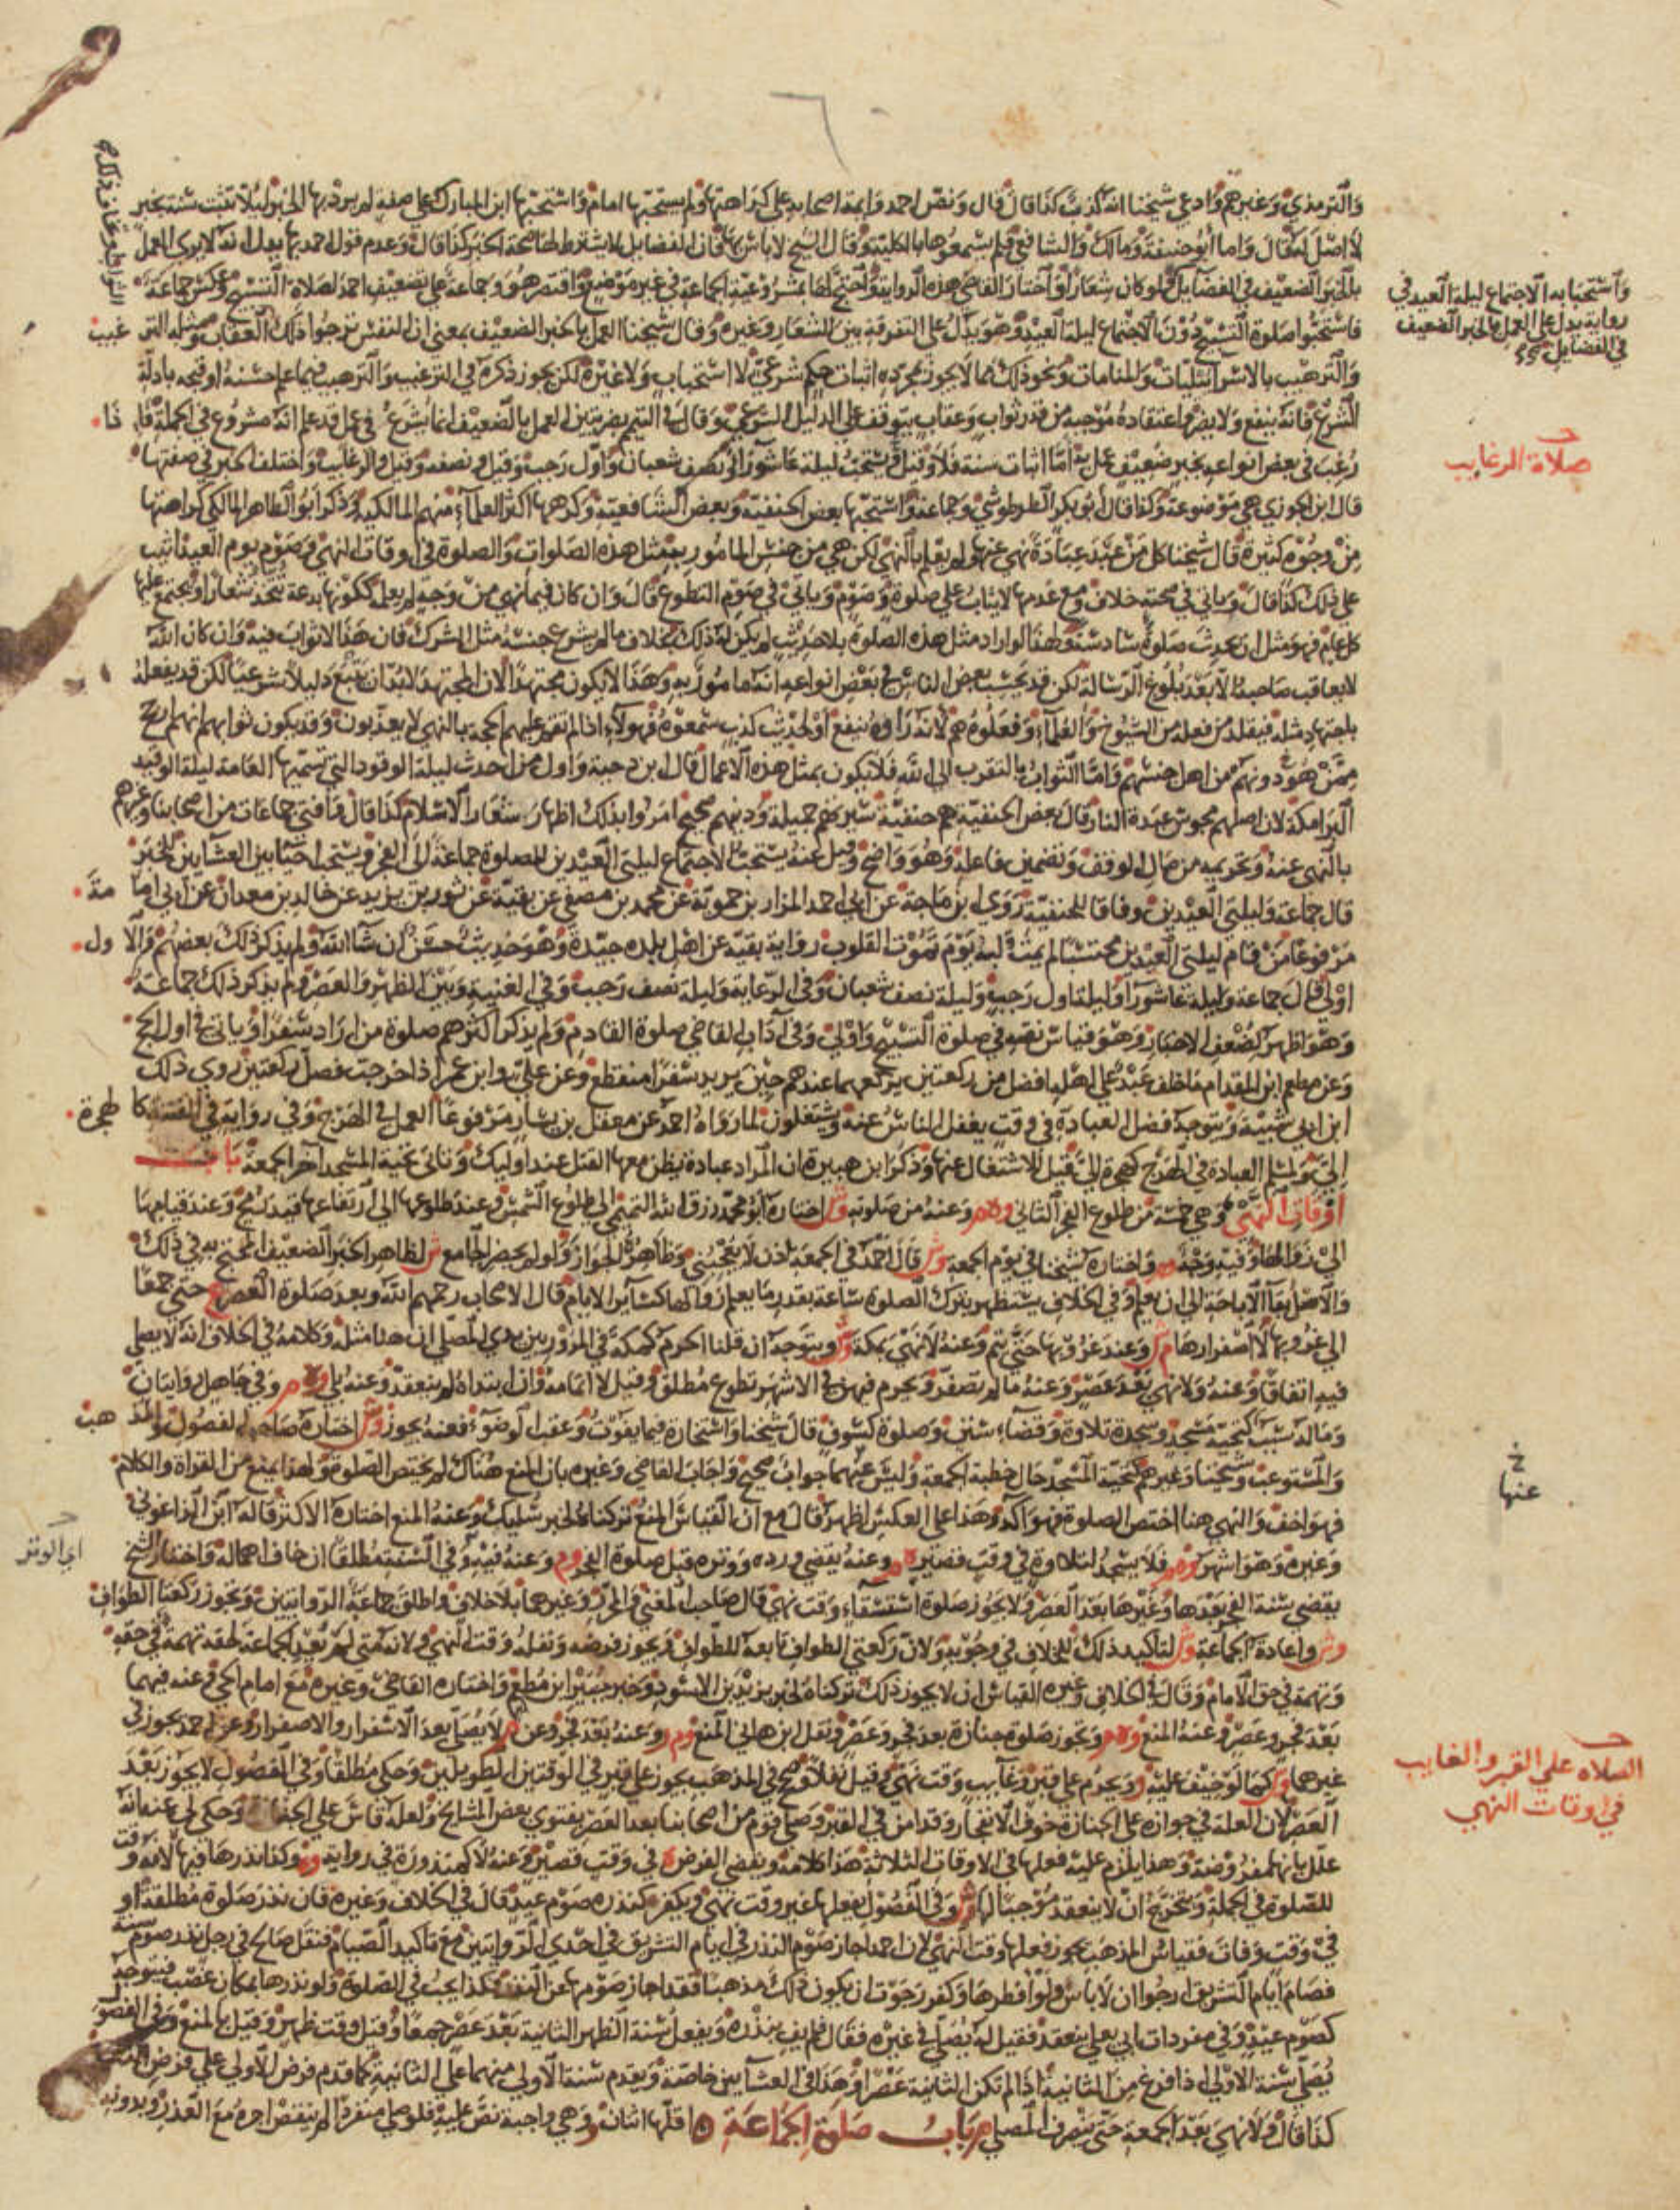 والترمذي وغيرهم وادعى شيخنا انه كذب كذا قال قال ونص احمد وايمة اصحابه على كراهتها ولم يستحبها امام واستحبها ابن المبارك على صفة لم يرد بها الخبر ليلا تثبت سنة بخبر
لا اصل له قال واما أبو حنيفة ومالك والشافعي فلم يسمعوها بالكلية وقال الشيخ لا باس بها فان الفضايل لا يشترط لها صحة الخبر كذا قال وعدم قول احمد بها يدل انه لا يرى العمل
بالخبر الضعيف في الفضايل ولو كان شعارا واختار القاضي هذه الرواية واحتج لها بمشروعية الجماعة في غير موضع واقتصر هو وجماعة على تضعيف احمد لصلاة التسبيح وعكس جماعة
فاستحبوا صلوة التسبيح دون الاجتماع ليلة العيد وهو يدل على التفرقة بين الشعار وغيره وقال شيخنا العمل بالخبر الضعيف بمعنى ان النفس ترجوا ذلك العقاب ومثله التر غيب
والترهيب بالاسرائيليات والمنامات ونحو ذلك مما لا يجوز بمجرده اثبات حكم شرعي لا استحباب ولا غيره لكن يجوز ذكره في الترغيب والترهيب فيما علم حسنه او قبحه بادلة
الشرع فانه ينفع ولا يضر واعتقاده موجبه من قدر ثواب وعقاب يتوقف على الدليل الشرعي وقال في التيمم بضربتين العمل بالضعيف انما يشرع في عمل قد علم انه مشروع في الجملة فا ذا
رغب في بعض انواعه بخبر ضعيف عمل به اما اثبات سنة فلا وقيل وتستحب ليلة عاشورا ونصف شعبان واول رجب وقيل ونصفه وقيل والرغايب واختلف الخبر في صفتها
قال ابن الجوزي هي موضوعة وكذا قال أبو بكر الطرطوشي وجماعة واستحبها بعض الحنفية وبعض الشافعية وكرهها اكثر العلماء منهم المالكية وذكر ابو الطاهر المالكي كراهتها
من وجوه كثيرة قال شيخنا كل من عبد عبادة نهي عنها ولم يعلم بالنهي لكن هي من جنس المامور به مثل هذه الصلوات والصلوة في اوقات النهي وصوم يوم العيد اثيب
على ذلك كذا قال وياتي في صحته خلاف ومع عدمها لا يثاب على صلوة وصوم وياتي في صوم التطوع قال وان كان فيما نهي من وجه لم يعلمه ككونها بدعة تتخذ شعارا ويجتمع عليها
كل عام فهو مثل ان يحدث صلوة سادسة ولهذا لو اراد مثل هذه الصلوة بلا حديث لم يكن له ذلك بخلاف ما لم يشرع جنسه مثل الشرك فان هذا لا ثواب فيه وان كان الله
لا يعاقب صاحبه الا بعد بلوغ الرسالة لكن قد يحسب بعض الناس في بعض انواعه انه مامور به وهذا لا يكون مجتهدا لان المجتهد لا بد ان يتبع دليلا شرعيا لكن قد يفعلها
باجتهاد مثله فيقلد من فعله من الشيوخ والعلماء وفعلوه هم لانه راوه ينفع او لحديث كذب سمعوه فهولاء اذا لم تقم عليهم الحجة بالنهي لا يعذبون وقد يكون ثوابهم انهم ارجح
ممن هو دونهم من اهل جنسهم واما الثواب بالتقرب الى الله فلا يكون بمثل هذه الاعمال قال ابن دحية واول من احدث ليلة الوقود التي تسميها العامة ليلة الوقيد
البرامكة لان اصلهم مجوس عبدة النار قال بعض الحنفية هم حنفية سيرتهم جميلة ودينهم صحيح امروا بذلك اظهار شعار الاسلام كذا قال فافتى جماعات من اصحابنا وغيرهم
بالنهي عنه وتحريمه من مال الوقف وتضمين فاعله وهو واضح وقيل عنه يستحب الاجتماع ليلتي العيدين للصلوة جماعة الى الفجر ويستحب احيا بين العشاين للخبر
قال جماعة وليلتي العيدين وفاقا للحنفية روى ابن ماجة عن ابي احمد المرار بن حموية عن محمد بن مصفى عن بقية عن ثور بن يزيد عن خالد بن معدان عن ابي اما مة
مرفوعا من قام ليلتي العيدين محتسبا لم يمت قلبه يوم تموت القلوب رواية بقية عن اهل بلده جيدة وهو حديث حسن ان شا الله ولم يذكر ذلك بعضهم والا ول
اولى قال جماعة وليلة عاشورا وليلة اول رجب وليلة نصف شعبان وفي الرعاية وليلة نصف رجب وفي الغنية وبين الظهر والعصر ولم يذكر ذلك جماعة
وهو اظهر لضعف الاخبار وهو قياس نصه في صلوة التسبيح واولى وفي اداب القاضي صلوة القادم ولم يذكر اكثرهم صلوة من اراد سفرا وياتي في اول الحج
وعن مطعم ابن المقدام ما خلف عبد على اهله افضل من ركعتين يركعهما عندهم حين يريد سفرا منقطع وعن علي وابن عمر اذا خرجت فصل ركعتين روى ذلك
ابن ابي شيبة ويتوجه فضل العبادة في وقت يغفل الناس عنه ويشتغلون لما رواه احمد عن معقل بن يسار مرفوعا العمل في الهرج وفي رواية في الفتنة كا لهجرة
الي ولمسلم العبادة في الهرج كهجرة الي قيل للاشتغال عنها وذكر ابن هبيرة ان المراد عبادة يظن معها القتل عند اوليك وتاتي تحية المسجد اخر الجمعة باب
اوقات النهي وهي خمسة من طلوع الفجر الثاني وهم وعنه من صلوته وش اختاره أبو محمد رزق الله التميمي الى طلوع الشمس وعند طلوعها الى ارتفاعها قيد رمح وعند قيامها
الى زوالها وفيه وجه وم واختاره شيخنا في يوم الجمعة وش قال احمد في الجمعة اذن لا يعجبني وظاهره الجواز ولو لم يحضر الجامع ش لظاهر الخبر الضعيف المحتج به في ذلك
والاصل بقا الاباحة الى ان يعلم وفي الخلاف يستظهر بترك الصلوة ساعة بقدر ما يعلم زوالها كسائر الايام قال الاصحاب رحمهم الله وبعد صلوة العصر ع حتى جمعا
الى غروبها لا اصفرارها م ر وعند غروبها حتى يتم وعنه لا نهي بمكة وش ويتوجه ان قلنا الحرم كمكة في المرور بين يدي المصلي ان هنا مثله وكلامه في الخلاف انه لا يصلي
فيه اتفاقا وعنه ولا نهي بعد عصر وعنه ما لم تصفر ويحرم فيهن في الاشهر تطوع مطلق وقيل لا اتمامه وان ابتداه لم ينعقد وعنه بلى وهم وفي جاهل روايتان
وما له سبب كتحية مسجد وسجدة تلاوة وقضاء سنن وصلوة كسوف قال شيخنا واستخارة فيما يفوت وعقب الوضوء فعنه يجوز وش اختاره صاحب الفصول والمذ هب
والمستوعب وشيخنا وغيرهم كتحية المسجد حال خطبة الجمعة وليس عنهما جواب صحيح واجاب القاضي وغيره بان المنع هناك لم يختص الصلوة ولهذا يمنع من القراة والكلام
فهو اخف والنهي هنا اختص الصلوة فهو اكد وهذا على العكس اظهر قال مع ان القياس المنع تركناه لخبر سليك وعنه المنع اختاره الاكثر قاله ابن الزاغوني
وغيره وهو اشهر وهم فلا يسجد لتلاوة في وقت قصير وعنه يقضي ورده ووتره قبل صلوة الفجر وم وعنه فيه وفي السنة مطلقا ان خاف اهماله واختار الشيخ
يقضي سنة الفجر بعدها وغيرها بعد العصر ولا يجوز صلوة استسقاء وقت نهي قال صاحب المغني والمحرر وغيرهما بلا خلاف واطلق جماعة الروايتين وتجوز ركعتا الطواف
وش واعادة الجماعة وش لتاكيد ذلك للخلاف في وجوبه ولان ركعتي الطواف تابعة للطواف ويجوز فرضه ونفله وقت النهي ولانه متى لم يعد الجماعة لحقه تهمة في حقه
وتهمة في حق الامام وقال في الخلاف وغيره القياس ان لا يجوز ذلك تركناه لخبر يزيد بن الاسود وخبر جبير ابن مطعم واختاره القاضي وغيره مع امام الحي وعنه فيهما
بعد فجر وعصر وعنه المنع وهم وتجوز صلوة جنازة بعد فجر وعصر ونقل ابن هاني المنع وم ر وعنه بعد فجر وعن م لا يصلى بعد الاسفرار والاصفرار وعن احمد يجوز في
غيرها وش كما لو خيف عليه ر ويحرم على قبر وغايب وقت نهي وقيل نفلا وصح في المذهب يجوز على قبر في الوقتين الطويلين وحكى مطلقا وفي الفصول لا يجوز بعد
العصر لان العلة في جوازه على الجنازة خوف الانفجار وقد امن في القبر وصلى قوم من اصحابنا بعد العصر بفتوى بعض المشايخ ولعله قاس على الجنازة وحكى لي عنه انه
علل بانها مفروضة وهذا يلزم عليه فعلها في الاوقات الثلاثة هذا كلامه ويقضي الفرض في وقت قصير وعنه لا كمنذورة في رواية وه وكذا نذرها فيها لانه وقت
للصلوة في الجملة ويتخرج ان لا ينعقد موجبا لها وش وفي الفصول يفعلها غير وقت نهي ويكفر كنذره صوم عيد قال في الخلاف وغيره فان نذر صلوة مطلقة او
في وقت وفات فقياس المذهب يجوز فعلها وقت النهي لان احمد اجاز صوم النذر في ايام التشريق في احدى الروايتين مع تاكيد الصيام فنقل صالح في رجل نذر صوم سنة
فصام ايام التشريق ارجوا ان لا باس ولو افطرها وكفر رجوت ان يكون ذلك مذهبا فقد اجاز صومها عن النذر كذا يجب في الصلوة ولو نذرها بمكان غصب فيتوجه
كصوم عيد وفي مفردات ابي يعلى ينعقد فقيل له يصلى في غيره فقال فلم يف بنذره ويفعل سنة الظهر الثانية بعد عصر جمعا وقيل وقت ظهر وقيل بالمنع وفي الفصول
يصلي سنة الاولى اذا فرغ من الثانية اذا لم تكن الثانية عصرا وهذا في العشاين خاصة ويقدم سنة الاولى منهما على الثانية كما قدم فرض الاولى على فرض الثانية
كذا قال ولا نهي بعد الجمعة حتى ينصرف المصلي م ر باب صلوة الجماعة اقلها اثنان وهي واجبة نص عليه فلو صلى منفردا لم ينقص اجره مع العذر وبدونه
واستحبابه الاجتماع ليلة العيد في
رواية يدل على العمل بالخبر الضعيف
في الفضايل
صلاة الرغايب
عنها
اي الوتر
الصلاه على القبر والغايب
في اوقات النهي